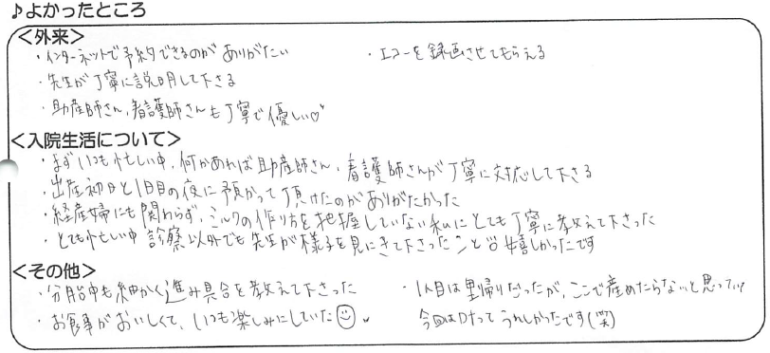 ♪よかったところ
＜外来＞
・インターネットで予約できるのがありがたい
・エコーを録画させてもらえる
・先生が丁寧に説明して下さる
・助産師さん、看護師さんも丁寧で優しい♡
＜入院生活について＞
・まずいつも忙しい中、何かあれば助産師さん、看護師さんが丁寧に対応して下さる
・出産初日と1日目の夜に預かって頂けたのがありがたかった
・経産婦にも関わらず、ミルクの作り方を把握していない私にとても丁寧に教えて下さった
・とても忙しい中 診察以外でも先生が様子を見にきて下さったこと 嬉しかったです
＜その他＞
・分娩中も細かく進み具合を教えて下さった
・お食事がおいしくて、いつも楽しみにしていた☺
・1人目は里帰りだったが、ここで産めたらなぁと思ってい
今回は 叶って うれしかったです(笑)